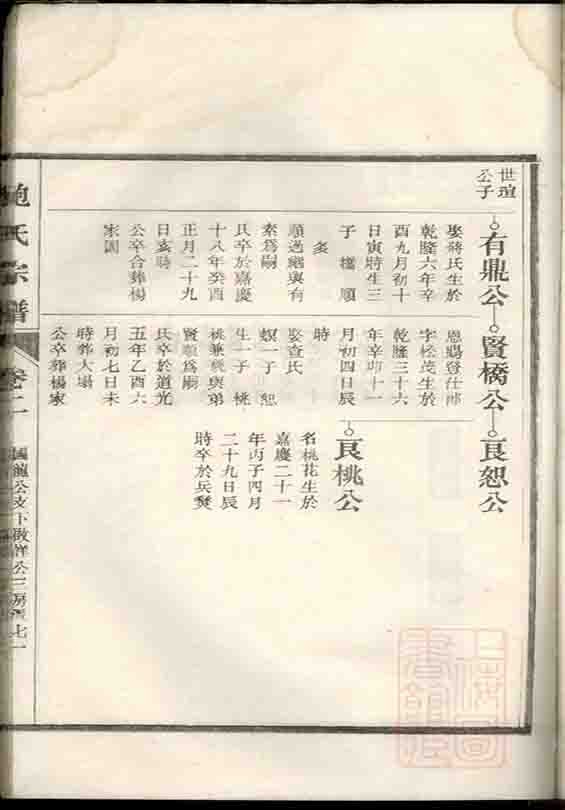 世瑄
公子
有鼎公
娶蔣氏生於
乾隆六年辛
酉九月初十
日寅時生三
子 橋 順
順過繼與有
素為嗣
氏卒於嘉慶
十八年癸酉
正月二十九
日亥時
公卒合葬楊
家園
賢橋公
恩賜登仕郎
字松茂生於
乾隆三十六
年辛卯十一
月初四日辰
時
娶查氏
螟一子 恕
生一子 桃
桃兼祧與弟
賢順為嗣
氏卒於道光
五年乙酉六
月初七日未
時葬大塌
公卒葬楊家
良恕公
良桃公
名桃花生於
嘉慶二十一
年丙子四月
二十九日辰
時卒於兵燹
鮑氏宗譜
卷二
國龍公支下啟祥公三房 七一
上海圖
書館藏